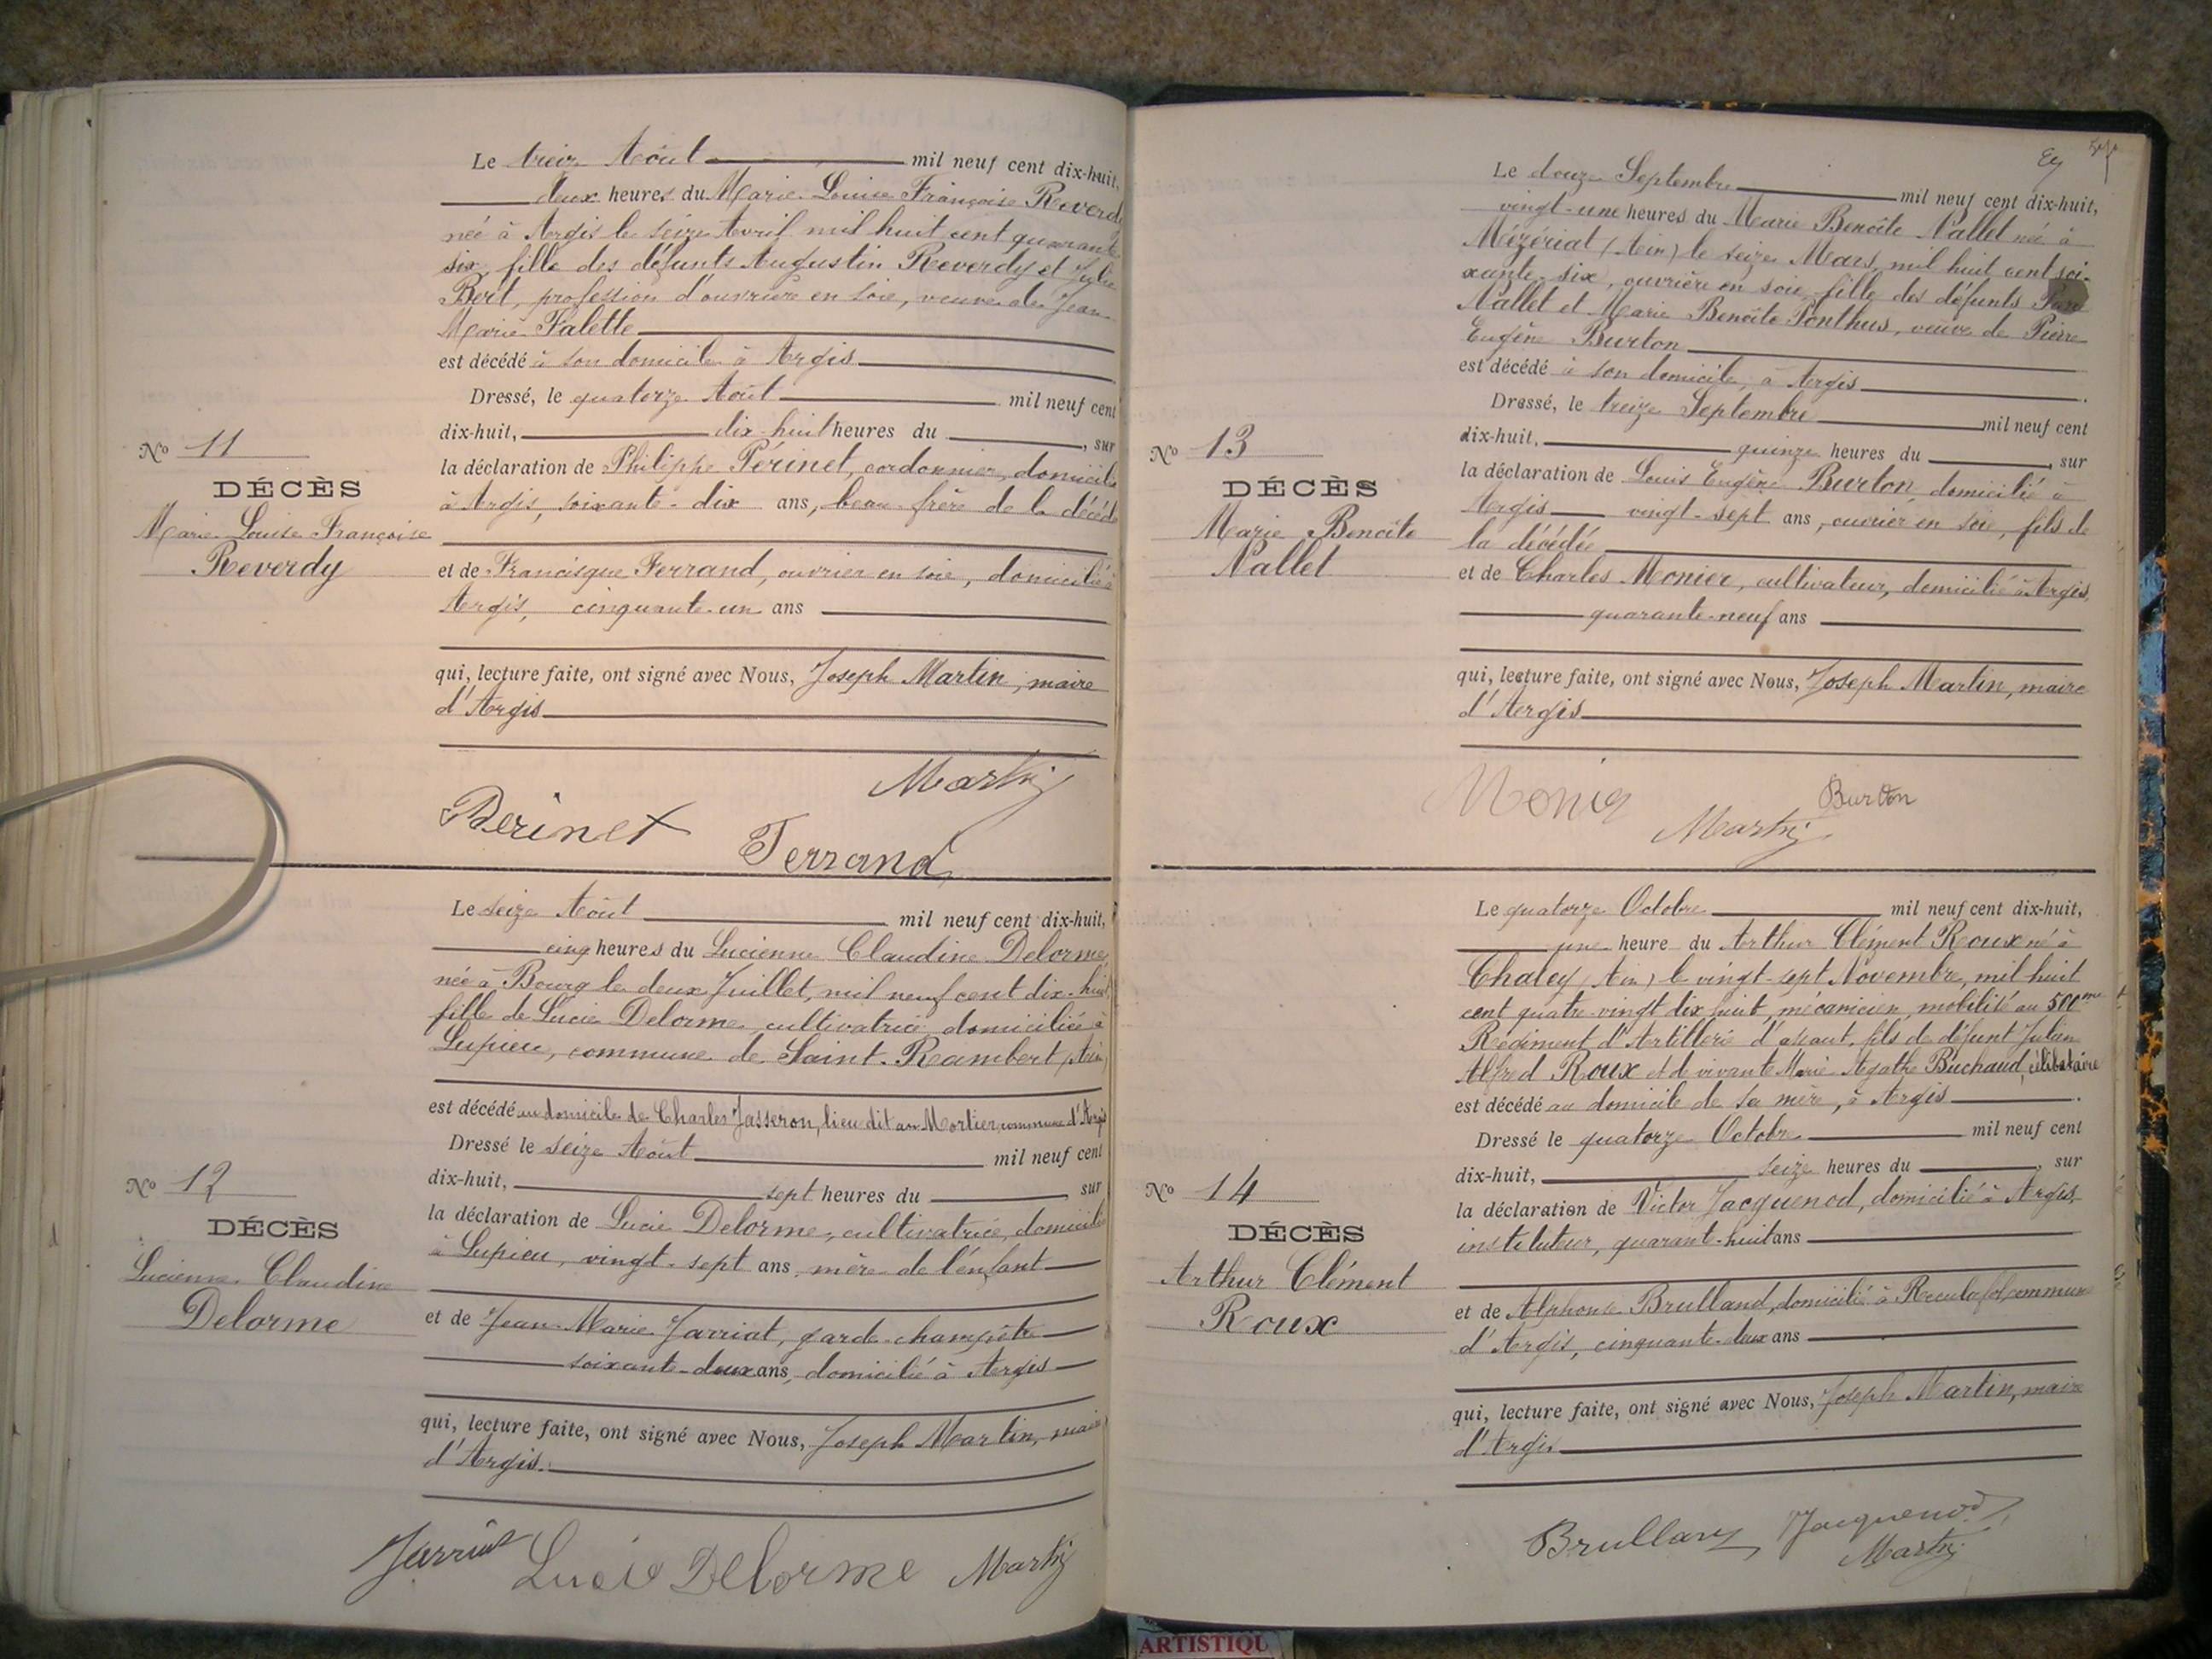 Le treize Août mil neuf cent dix-huit,
deux heures du Marie Louise Françoise Reverdy
née à Argis le seize Avril mil huit cent quarante
six, fille des défunts Augustin Reverdy et Julie
Bert, profession d'ouvrière en soie, veuve de Jean
Marie Falette
est décédé à son domicile à Argis
Dressé, le quatorze Août mil neuf cent
dix-huit, dix-huit heures du , sur
la déclaration de Philippe Périnet, cordonnier, domicilié
à Argis, soixante-dix ans, beau-frère de la décédé
et de Francisque Ferrand, ouvrier en soie, domicilié à
Argis, cinquante-un ans
qui, lecture faite, ont signé avec Nous, Joseph Martin, maire
d'Argis
No 11
DÉCÈS
Marie Louise Françoise
Reverdy
Martin
Périnet Ferrand
Le seize Août mil neuf cent dix-huit,
cinq heures du Lucienne Claudine Delorme
née à Bourg le deux Juillet, mil neuf cent dix-huit
fille de Lucie Delorme, cultivatrice, domiciliée à
Lupieu, commune de Saint-Rambert (Ain)
est décédé au domicile de Charles Jasseron, lieu dit aux Mortier, commune d'Argis
Dressé le seize Août mil neuf cent
dix-huit, sept heures du , sur
la déclaration de Lucie Delorme, cultivatrice, domicilié
à Lupieu, vingt-sept ans, mère de l'enfant
et de Jean-Marie Jarriat, garde-champêtre
soixante-deux ans, domicilié à Argis
qui, lecture faite, ont signé avec Nous, Joseph Martin, maire
d'Argis.
No 12
DÉCÈS
Lucienne Claudine
Delorme
Jarriat Lucie Delorme Martin
Le douze Septembre mil neuf cent dix-huit,
vingt-une heures du Marie Benoîte Nallet née à
Mézériat (Ain) le seize Mars, mil huit cent soi-
xante-six, ouvrière en soie, fille des défunts
Nallet et Marie Benoîte Ponthus, veuve de Pierre
Eugène Burton
est décédé à son domicile, à Argis
Dressé, le treize Septembre mil neuf cent
dix-huit, quinze heures du , sur
la déclaration de Louis Eugène Burton, domicilié à
Argis vingt-sept ans, ouvrier en soie, fils de
la décédée
et de Charles Monier, cultivateur, domicilié à Argis,
quarante-neuf ans
qui, lecture faite, ont signé avec Nous, Joseph Martin, maire
d'Argis
No 13
DÉCÈS
Marie Benoîte
Nallet
Monier Burton
Martin
Le quatorze Octobre mil neuf cent dix-huit,
une heure du Arthur Clément Roux né à
Chaley (Ain) le vingt-sept Novembre, mil huit
cent quatre-vingt dix huit, mécanicien, mobilisé au 500me
Régiment d'Artillerie d'assaut, fils de défunt Julien
Alfred Roux et de vivante Marie Agathe Buchaud, célibataire
est décédé au domicile de sa mère, à Argis
Dressé le quatorze Octobre mil neuf cent
dix-huit, seize heures du , sur
la déclaration de Victor Jacquenod, domicilié à Argis,
instituteur, quarante-huit ans
et de Alphonse Brulland, domicilié à Reculafol, commune
d'Argis, cinquante-deux ans
qui, lecture faite, ont signé avec Nous, Joseph Martin, maire
d'Argis
No 14
DÉCÈS
Arthur Clément
Roux
Brulland Jacquenod
Martin
ARTISTIQU